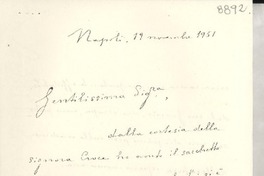 8892
Napoli, 19 novembre 1951
Gentilissima Sig.ra,
dalla cortesia della
signora Croce ho avuto il sacchetto